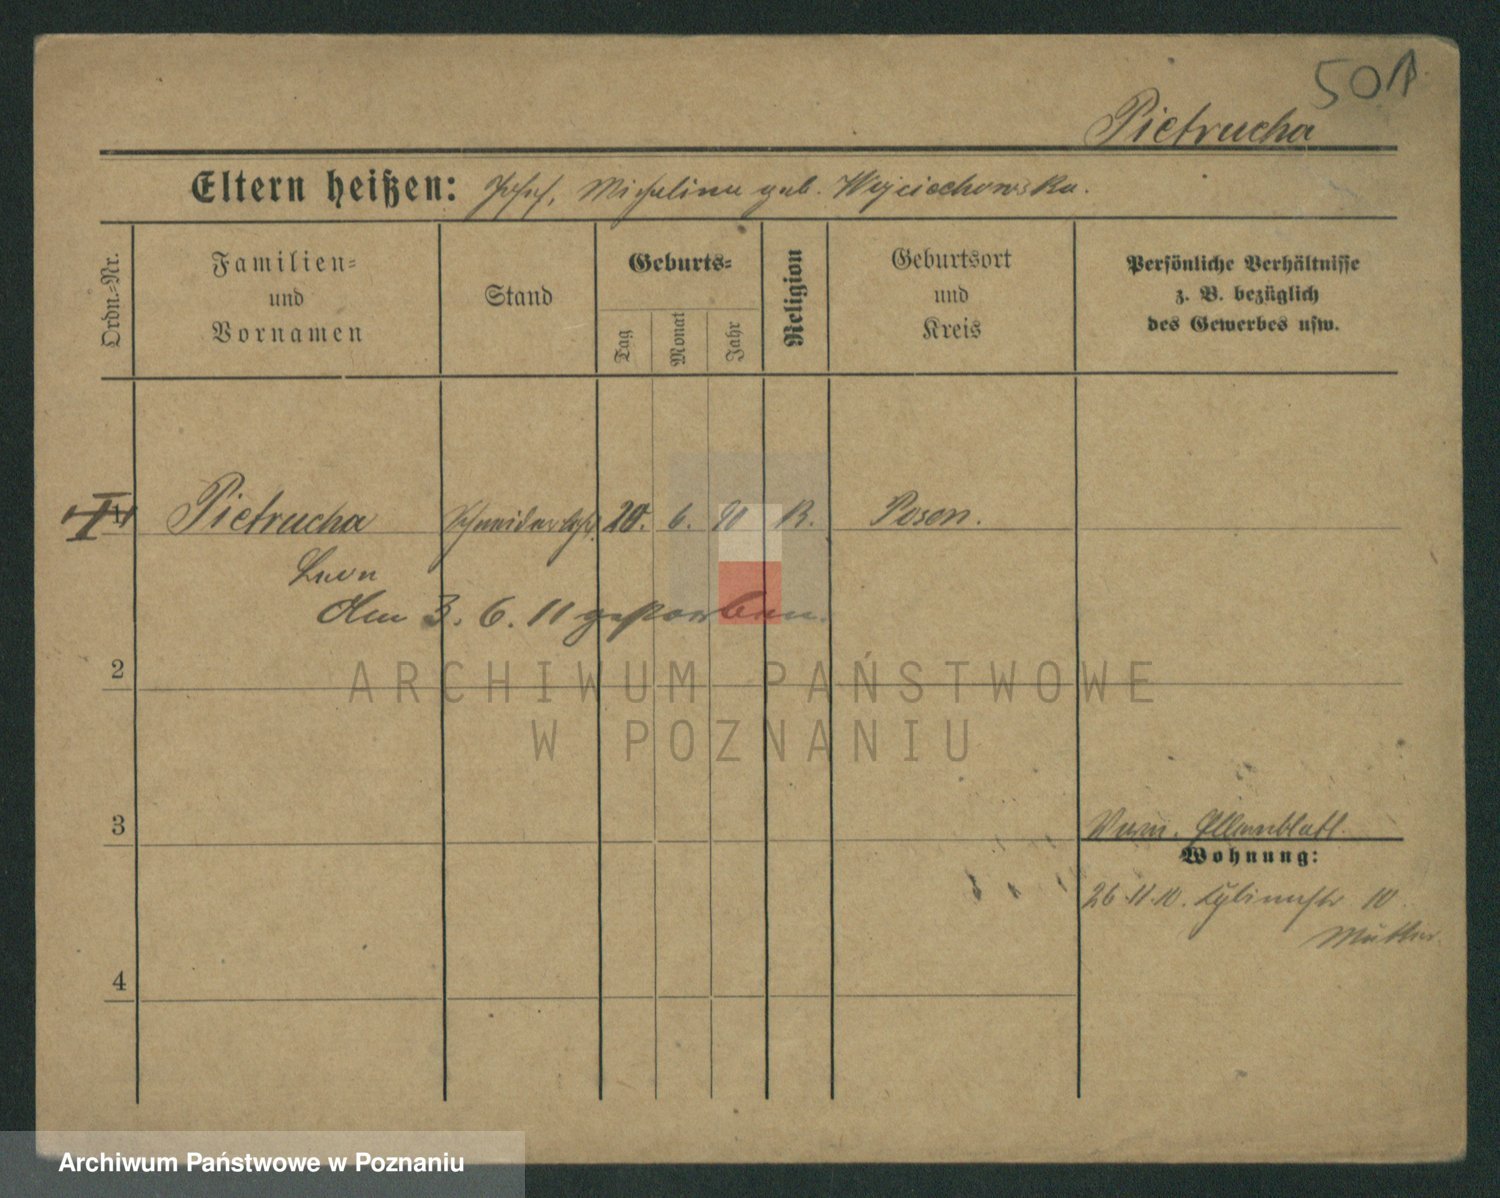 501
Pietrucha
Eltern heißen: Josef, Michalina geb. Wojciechowska.
Ordn.-Nr.
Familien-
und
Vornamen
Stand
Geburts-
Tag
Monat
Jahr
Religion
Geburtsort
und
Kreis
Persönliche Verhältnisse
z. B. bezüglich
des Gewerbes usw.
Pietrucha 20. 6. 90 R. Posen.
Leon
Am 3. 6. 11 gestorben.
ARCHIWUM PAŃSTWOWE
W POZNANIU
2
3
4
Wohnung:
26.11.10. 10
Mutter.
Archiwum Państwowe w Poznaniu